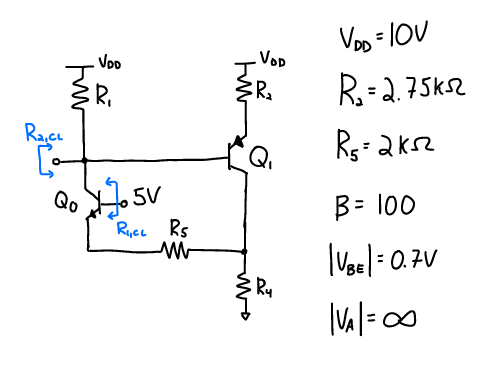 VDD
R1
VDD
R2
R2,CL
Q1
Q0
5V
R1,CL
R5
R4
VDD = 10V
R2 = 2.75kΩ
R5 = 2kΩ
B = 100
|VBE| = 0.7V
|VA| = ∞